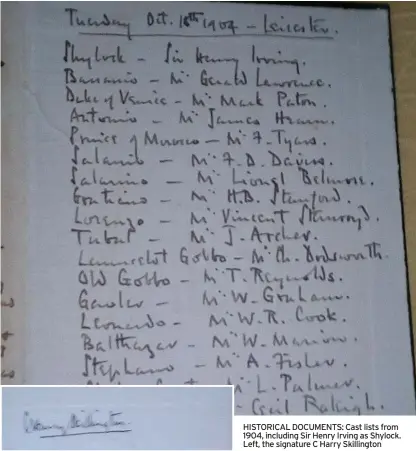 Tuesday Oct. 18th 1904 – Leicester.
Shylock – Sir Henry Irving.
Bassanio – Mr Gerald Lawrence.
Duke of Venice – Mr Mark Paton.
Antonio – Mr James Hearn.
Prince of Morocco – Mr F. Tyars.
Salanio – Mr F. D. Davis.
Salarino – Mr Lionel Belmore.
Gratiano – Mr H.B. Stanford.
Lorenzo – Mr Vincent
Tubal – Mr J. Archer.
Launcelot Gobbo – Mr Ch. Dodsworth.
Old Gobbo – Mr T. Reynolds.
Gaoler – Mr W. Graham.
Leonardo – Mr W. R. Cook.
Balthazar – Mr W. Marion.
Stephano – Mr A. Fisher.
Mr L. Palmer.
– Cecil Raleigh.
C Harry Skillington
HISTORICAL DOCUMENTS: Cast lists from
1904, including Sir Henry Irving as Shylock.
Left, the signature C Harry Skillington